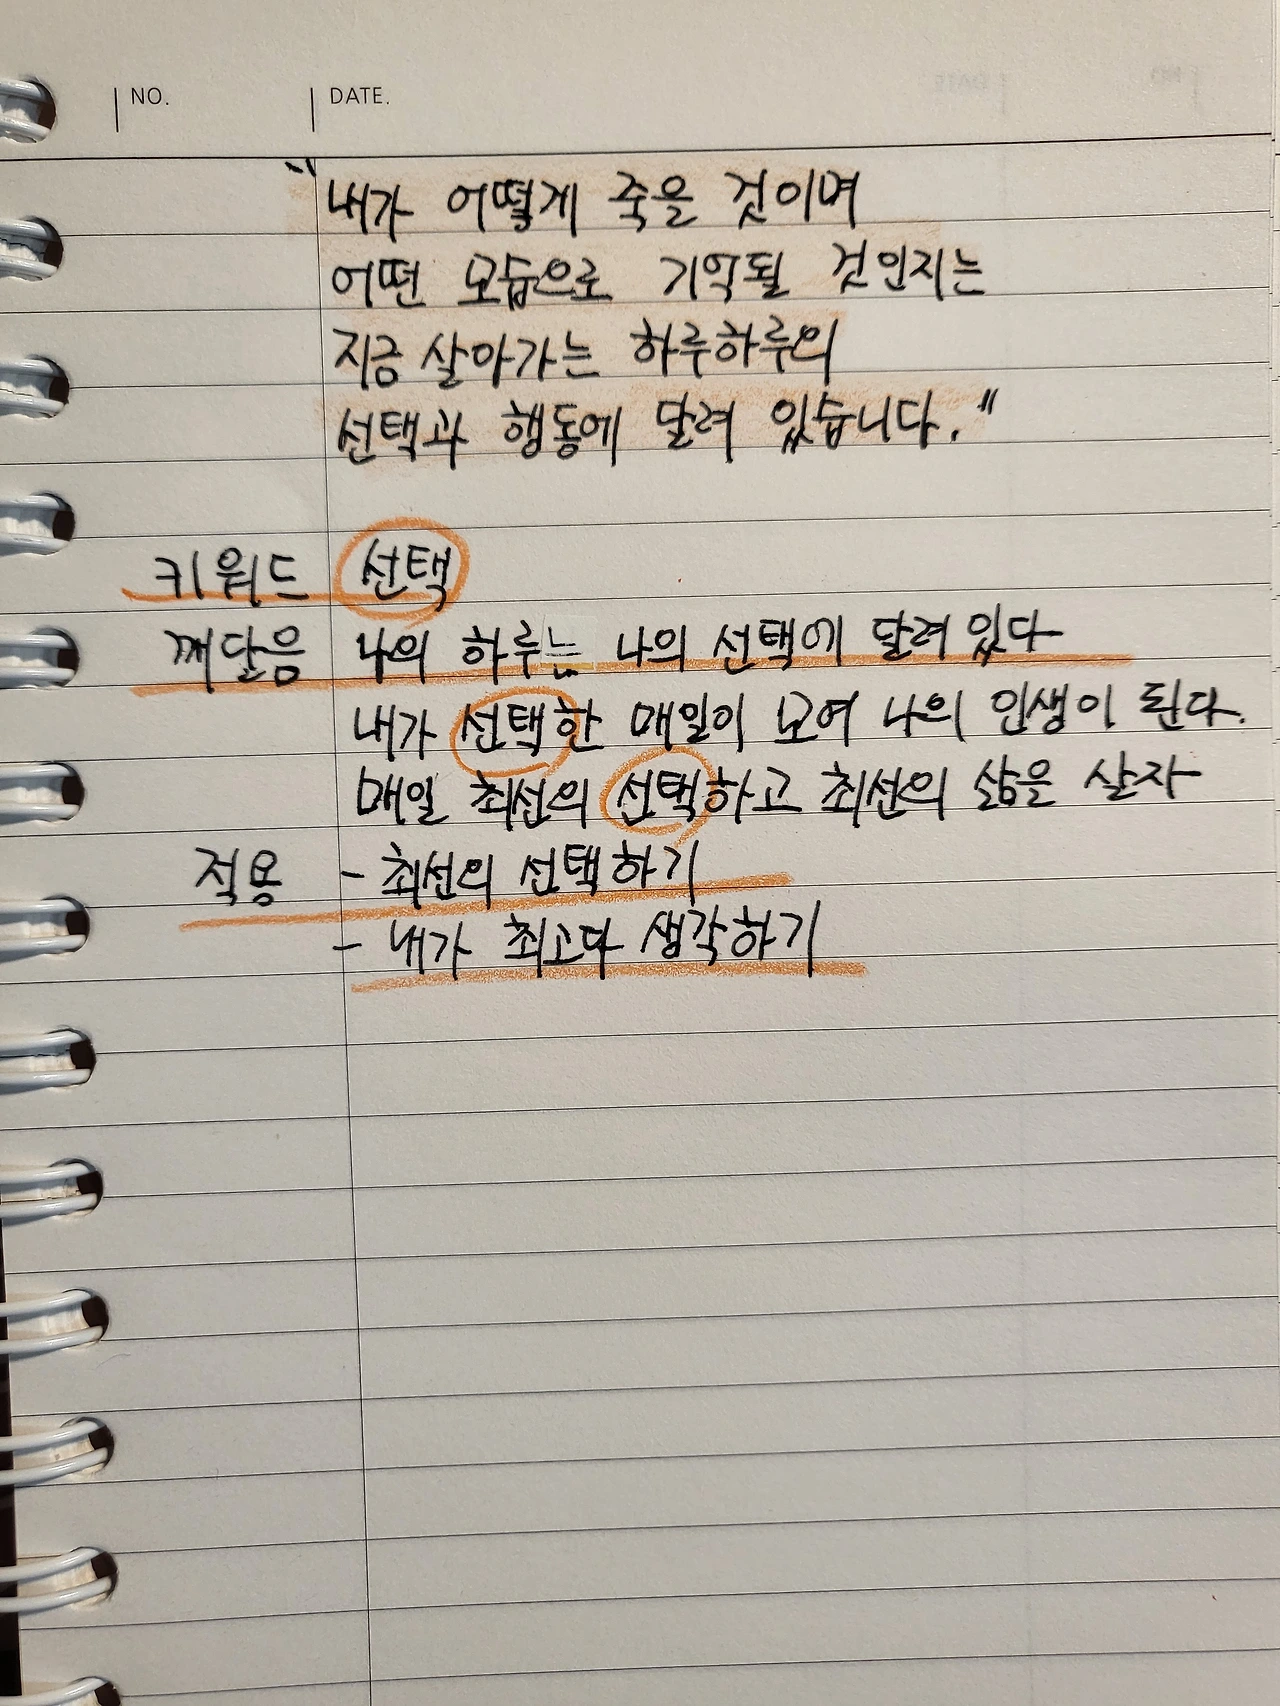 NO. DATE.
"내가 어떻게 죽을 것이며
어떤 모습으로 기억될 것인지는
지금 살아가는 하루하루의
선택과 행동에 달려 있습니다."
키워드 선택
깨달음 나의 하루는 나의 선택에 달려있다
내가 선택한 매일이 모여 나의 인생이 된다.
매일 최선의 선택하고 최선의 삶을 살자
적용 - 최선의 선택하기
- 내가 최고다 생각하기